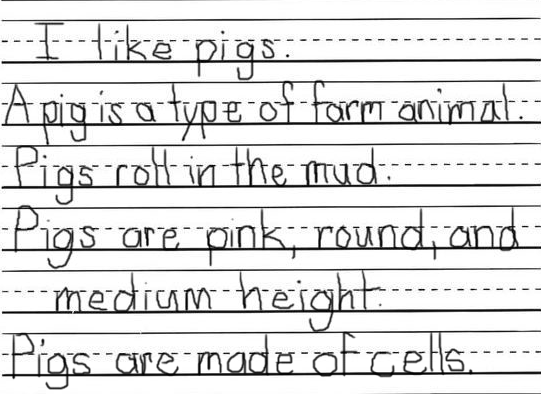 I like pigs.
A pig is a type of farm animal.
Pigs roll in the mud.
Pigs are pink, round, and
medium height.
Pigs are made of cells.